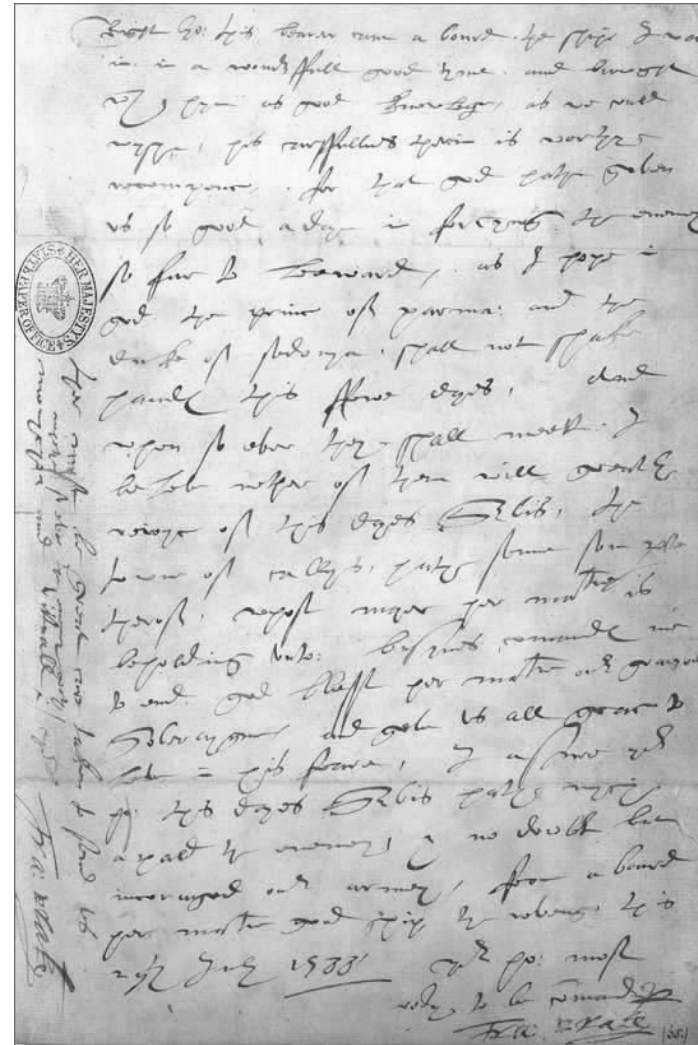 Right ho: this bearer cam a bourd the ship I was
in in a wonderffull good tyme and brought
with hym as good knowledge as we could
wyshe, his carffullnes therin is worthye
recompence, for that god hathe geven
us so good a daye in forcyng the enemy
so far to leeward, as I hope in
god the prince of parma and the
duke of sedonya shall not shake
handes this ffewe dayes, And
when so ever they shall meet, I
beleve nether of them will greatly
reioyce of this dayes Servis, the
towne of callys hathe seene som parte
therof, whose mayer her matie is
beholding unto: busynes comandes me
to end. god bless her matie our gracyous
Soveraygne and geve us all grace to
leve in his feare, I assure your
ho: this dayes Servis hathe mych
apald the enemey, & no doubt but
incoraged our armey, from a bourd
her maties good ship the revenge this
29th July 1588
your ho: most
redy to be comanded
Fra: Drake
ther must be great care taken to send us
monycyon and vittuall
Fra: Drake
HER MAJESTY'S STATE PAPER OFFICE